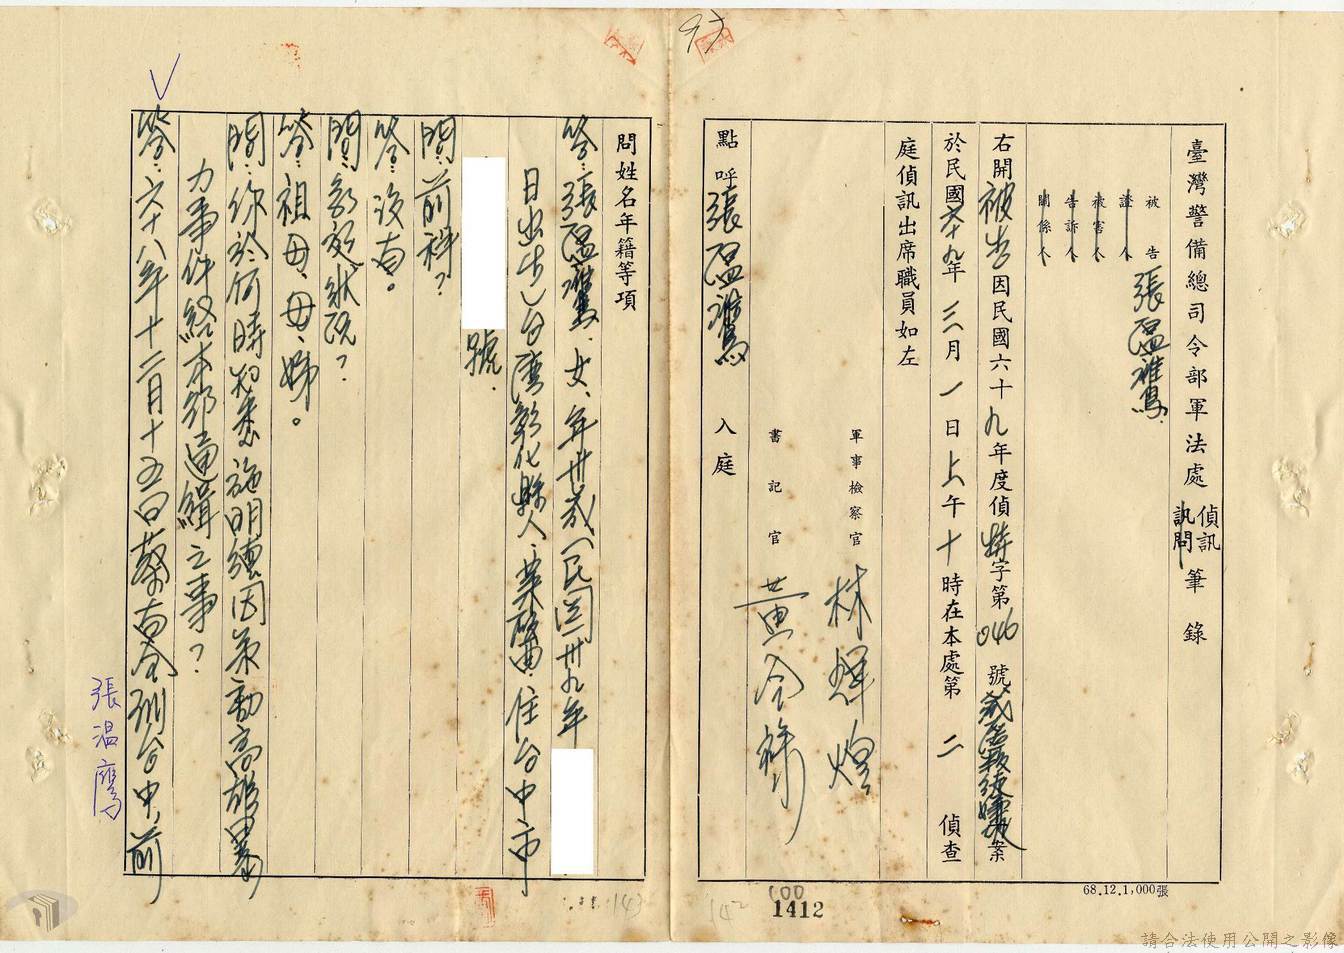 臺灣警備總司令部軍法處偵訊訊問筆錄
被告 張温鷹
證人
被害人
告訴人
關係人
右開被告因民國六十九年度偵特字第046號藏匿叛徒嫌疑案
於民國六十九年三月一日上午十時在本處第二偵查
庭偵訊出席職員如左
軍事檢察官 林輝煌
書記官 黃金祿
點呼張温鷹 入庭
68.12.1,000張
問姓名年籍等項
答:張温鷹、女、年卅歲(民國卅九年
日出生)台灣彰化縣人、業醫、住台中市
號.
問:前科?
答:沒有。
問:家庭狀況?
答:祖母、母、姊。
問:你於何時知悉施明德因策動高雄暴
力事件經本部通緝之事?
答:六十八年十二月十五日蔡南金到台中,前
張温鷹
1412
100
142
143
請合法使用公開之影像